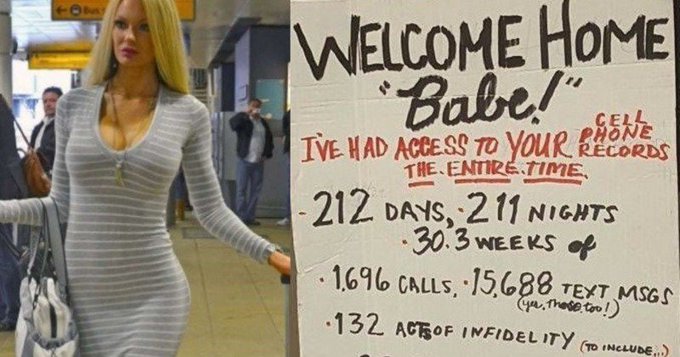 Bus
WELCOME HOME
"Babe!"
I'VE HAD ACCESS TO YOUR CELL PHONE RECORDS
THE ENTIRE TIME.
- 212 DAYS, · 211 NIGHTS
· 30.3 WEEKS of
· 1,696 CALLS, · 15,688 TEXT MSGS
(yes, those too!)
· 132 ACTS OF INFIDELITY (TO INCLUDE...)